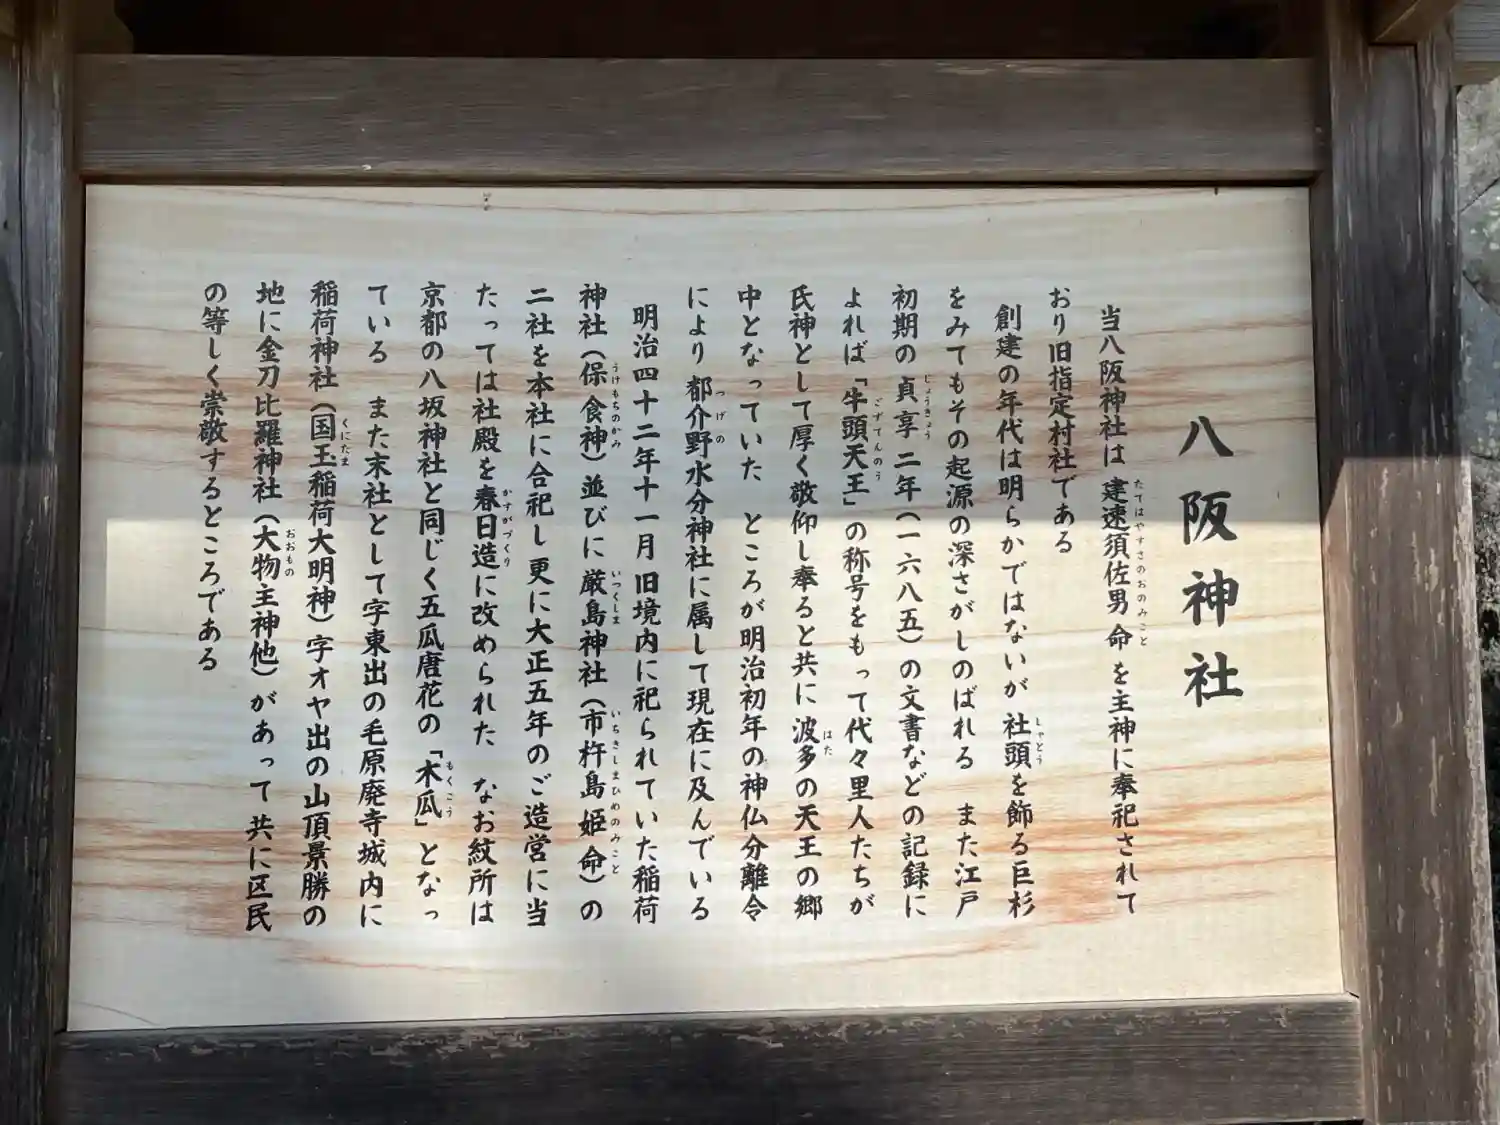 八阪神社
当八阪神社は 建速須佐男命 を主神に奉祀されて
おり旧指定村社である
創建の年代は明らかではないが 社頭を飾る巨杉
をみてもその起源の深さがしのばれる また江戸
初期の 貞享 二年(一六八五)の文書などの記録に
よれば「牛頭天王」の称号をもって代々里人たちが
氏神として厚く敬仰し奉ると共に 波多の天王の郷
中となっていた ところが明治初年の神仏分離令
により 都介野水分神社に属して現在に及んでいる
明治四十二年十一月 旧境内に祀られていた稲荷
神社(保食神)並びに 厳島神社(市杵島姫命)の
二社を本社に合祀し更に大正五年のご造営に当
たっては社殿を春日造に改められた なお紋所は
京都の八坂神社と同じく五瓜唐花の「木瓜」となっ
ている また末社として字東出の毛原廃寺城内に
稲荷神社(国玉稲荷大明神)字オヤ出の山頂景勝の
地に金刀比羅神社(大物主神他)があって 共に区民
の等しく崇敬するところである